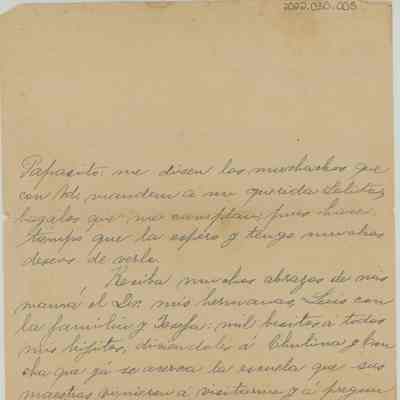 2022.030.005
Papacito: me dicen los muchachos que
con Ud. mandan á mi querida Lolita,
hágales que me cumplan, pues hace
tiempo que la espero y tengo muchos
deseos de verla.
Reciba muchos abrazos de mi
mamá el Dr. mis hermanas, Luis con
la familia y Josefa: mil besitos á todos
mis hijitos, diciendoles á
cha que ya se acerca la escuela que sus
maestras vinieron á visitarme y á pregun